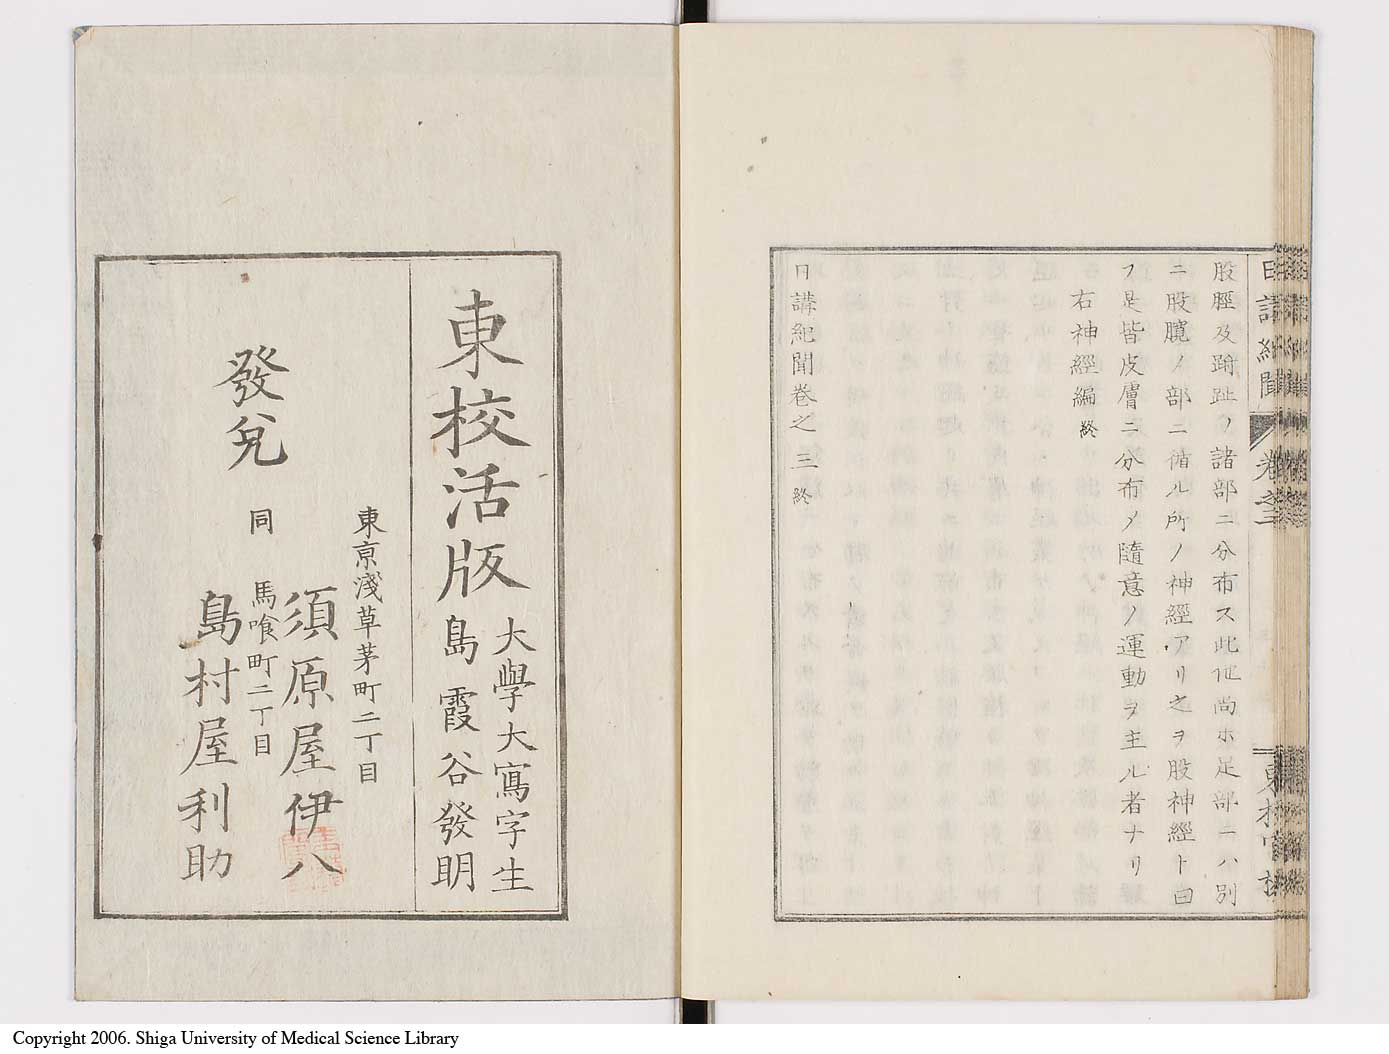 股脛及跗趾ノ諸部ニ分布ス此他尚ホ足部ニハ別
ニ股膁ノ部ニ循ル所ノ神經アリ之ヲ股神經ト曰
フ是皆皮膚ニ分布メ隨意ノ運動ヲ主ル者ナリ
右神經編終
日講紀聞卷之三終
日講紀聞
卷之三
東校官板
東校活版
大學大寫字生
島霞谷發明
東京淺草茅町二丁目
須原屋伊八
發兌
同
馬喰町二丁目
島村屋利助
Copyright 2006. Shiga University of Medical Science Library